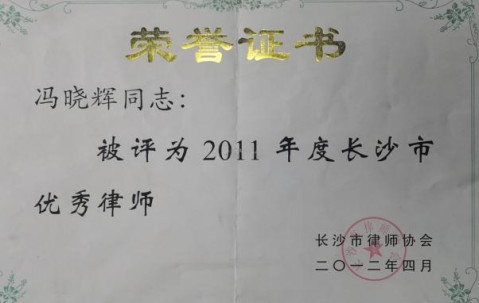 荣誉证书
冯晓辉同志：
被评为2011年度长沙市
优秀律师
长沙市律师协会
二〇一二年四月